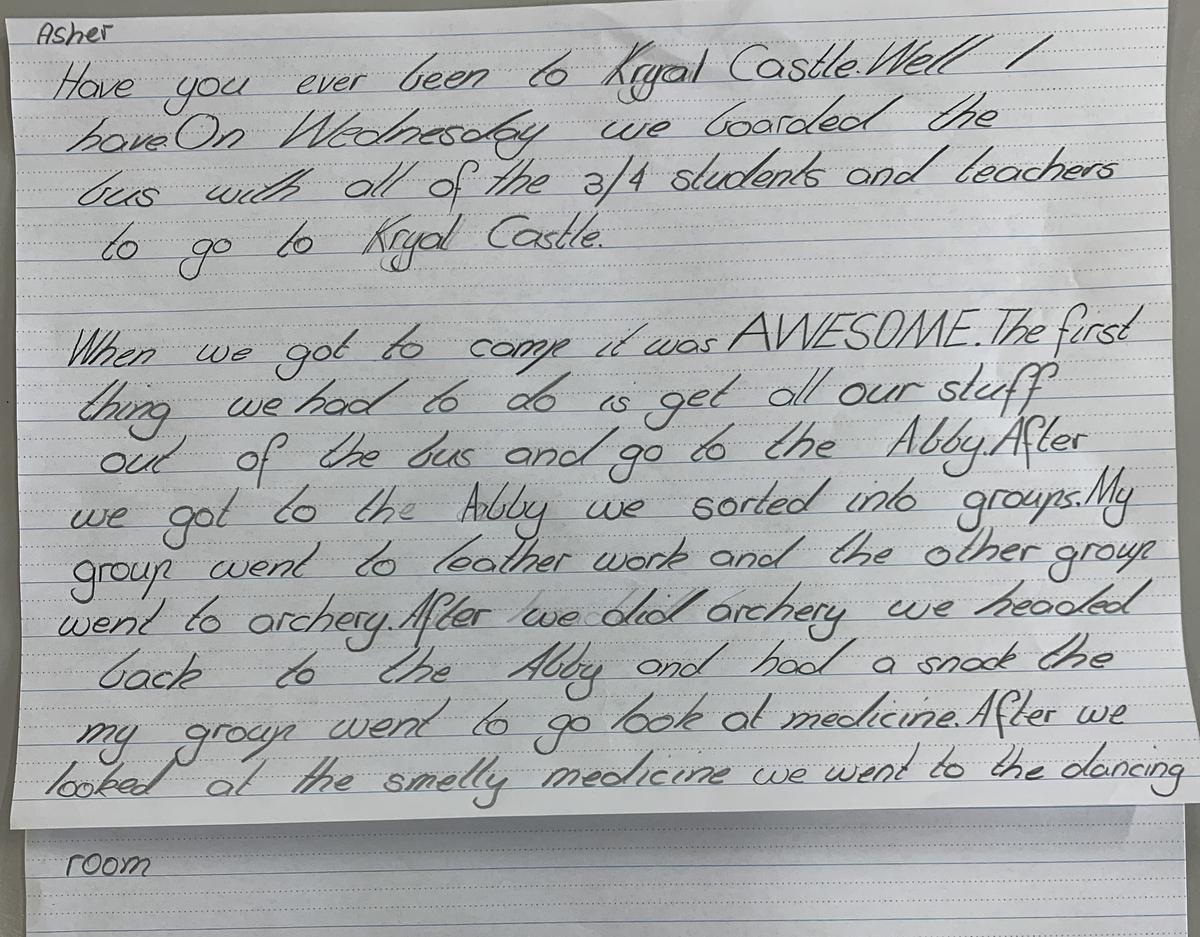 Asher
Have you ever been to Kryal Castle. Well I
have. On Wednesday we boarded the
bus with all of the 3/4 students and teachers
to go to Kryal Castle.
When we got to camp it was AWESOME. The first
thing we had to do is get all our stuff
out of the bus and go to the Abby. After
we got to the Abby we sorted into groups. My
group went to leather work and the other group
went to archery. After we did archery we headed
back to the Abby and had a snack the
my group went to go look at medicine. After we
looked at the smelly medicine we went to the dancing
room